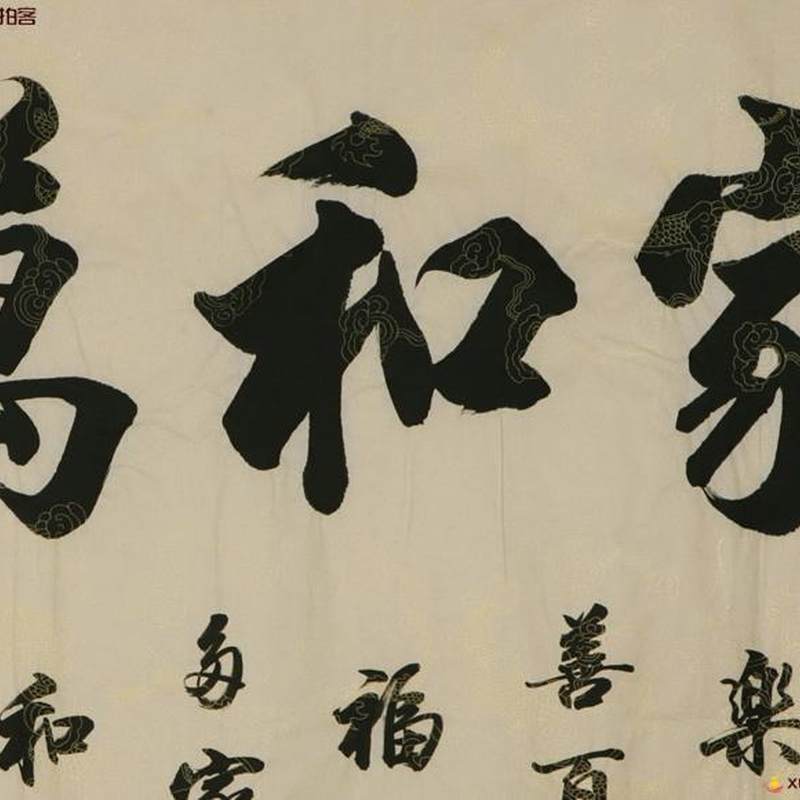 家和萬
樂
善百
福
多家
和
拍客